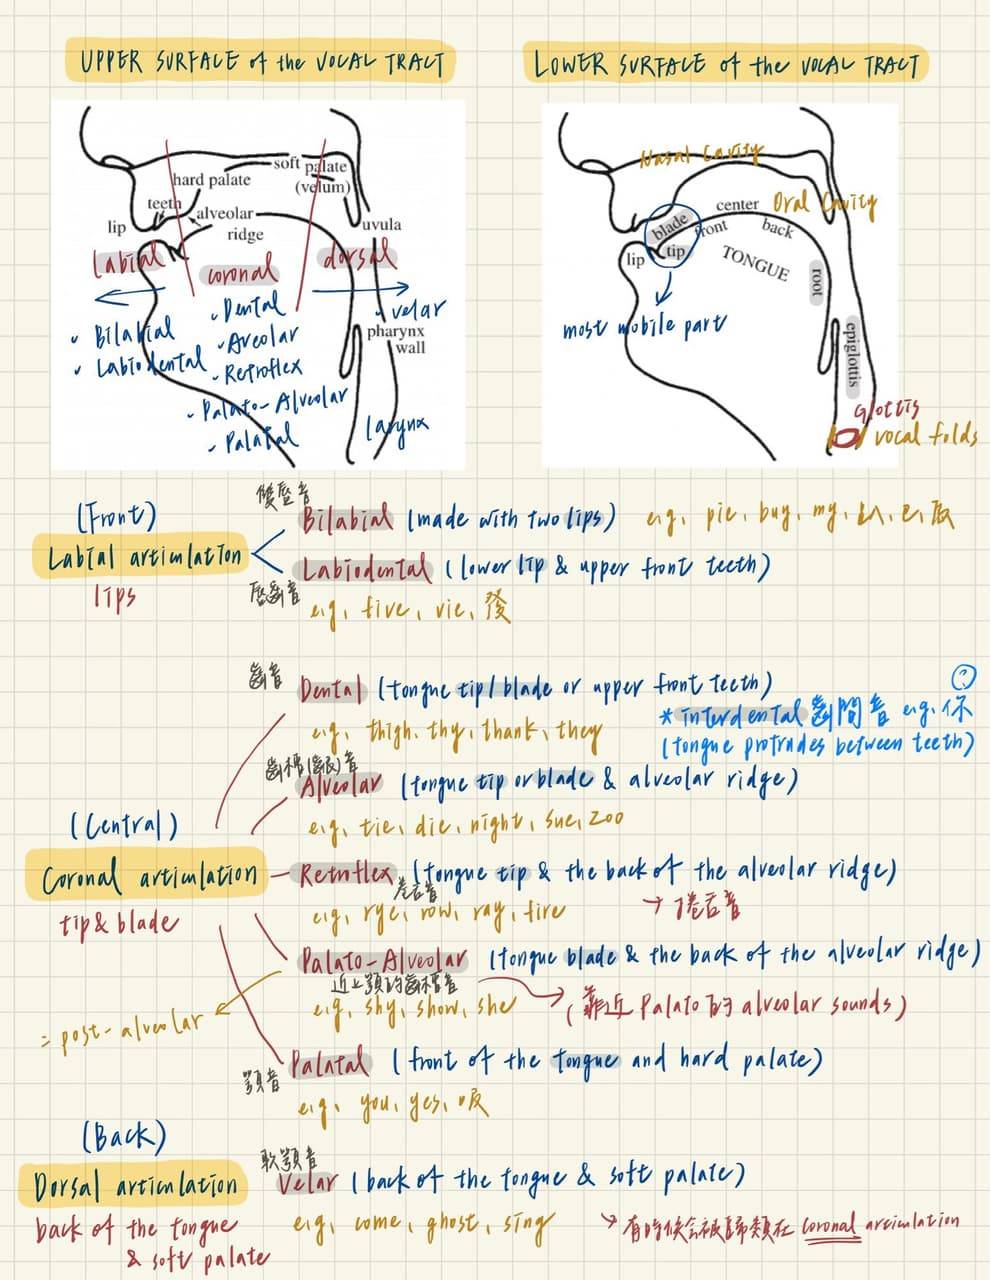 UPPER SURFACE of the VOCAL TRACT
LOWER SURFACE of the VOCAL TRACT
soft palate
(velum)
hard palate
teeth
alveolar
ridge
lip
uvula
Labial
coronal
dorsal
• Bilabial
• Labiodental
• Dental
• Aveolar
• Retroflex
• Palato-Alveolar
• Palatal
• velar
pharynx
wall
larynx
Nasal Cavity
Oral Cavity
center
blade
front
back
tip
lip
TONGUE
root
most mobile part
epiglottis
Glottis
vocal folds
(Front)
Labial articulation
lips
雙唇音
Bilabial (made with two lips) e.g. pie, buy, my, 趴,
唇齒音
Labiodental (lower lip & upper front teeth)
e.g. five, vie, 發
齒音
Dental (tongue tip/blade or upper front teeth)
e.g. thigh, thy, thank, they
?
* interdental 齒間音 e.g. 你
(tongue protrudes between teeth)
齒槽(齦)音
Alveolar (tongue tip or blade & alveolar ridge)
e.g. tie, die, night, sue, zoo
(Central)
Coronal articulation
tip & blade
Retroflex (tongue tip & the back of the alveolar ridge)
卷舌音
e.g. rye, row, ray, fire
→ 捲舌音
Palato-Alveolar (tongue blade & the back of the alveolar ridge)
近上顎的齒槽音
e.g. shy, show, she
(靠近 Palato 的 alveolar sounds)
= post-alveolar
顎音
Palatal (front of the tongue and hard palate)
e.g. you, yes,
(Back)
Dorsal articulation
back of the tongue
& soft palate
軟顎音
Velar (back of the tongue & soft palate)
e.g. come, ghost, sing
→ 有時候會被歸類在 coronal articulation